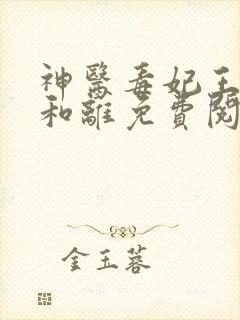 神醫毒妃王
和離免費閱
金玉蓉